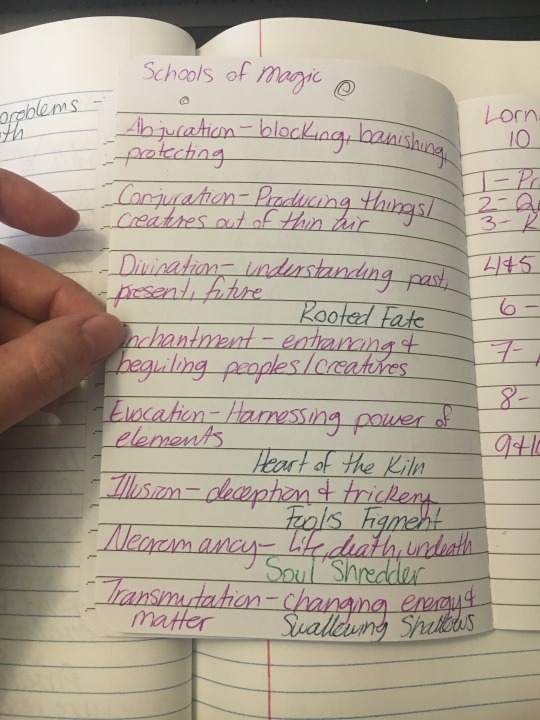 problems -
th
Schools of Magic
Abjuration - blocking, banishing,
protecting
Conjuration - Producing things/
creatures out of thin air
Divination - understanding past,
present, future
Rooted Fate
nchantment - entrancing &
beguiling peoples/creatures
Evocation - Harnessing power of
elements
Heart of the Kiln
Illusion - deception & trickery
Fool's Figment
Necromancy - life, death, undeath
Soul Shredder
Transmutation - changing energy &
matter Swallowing Shallows
Lorn
10
1 - Pr
2 -
3 - K
4&5
6 -
7 -
8 -
9&10